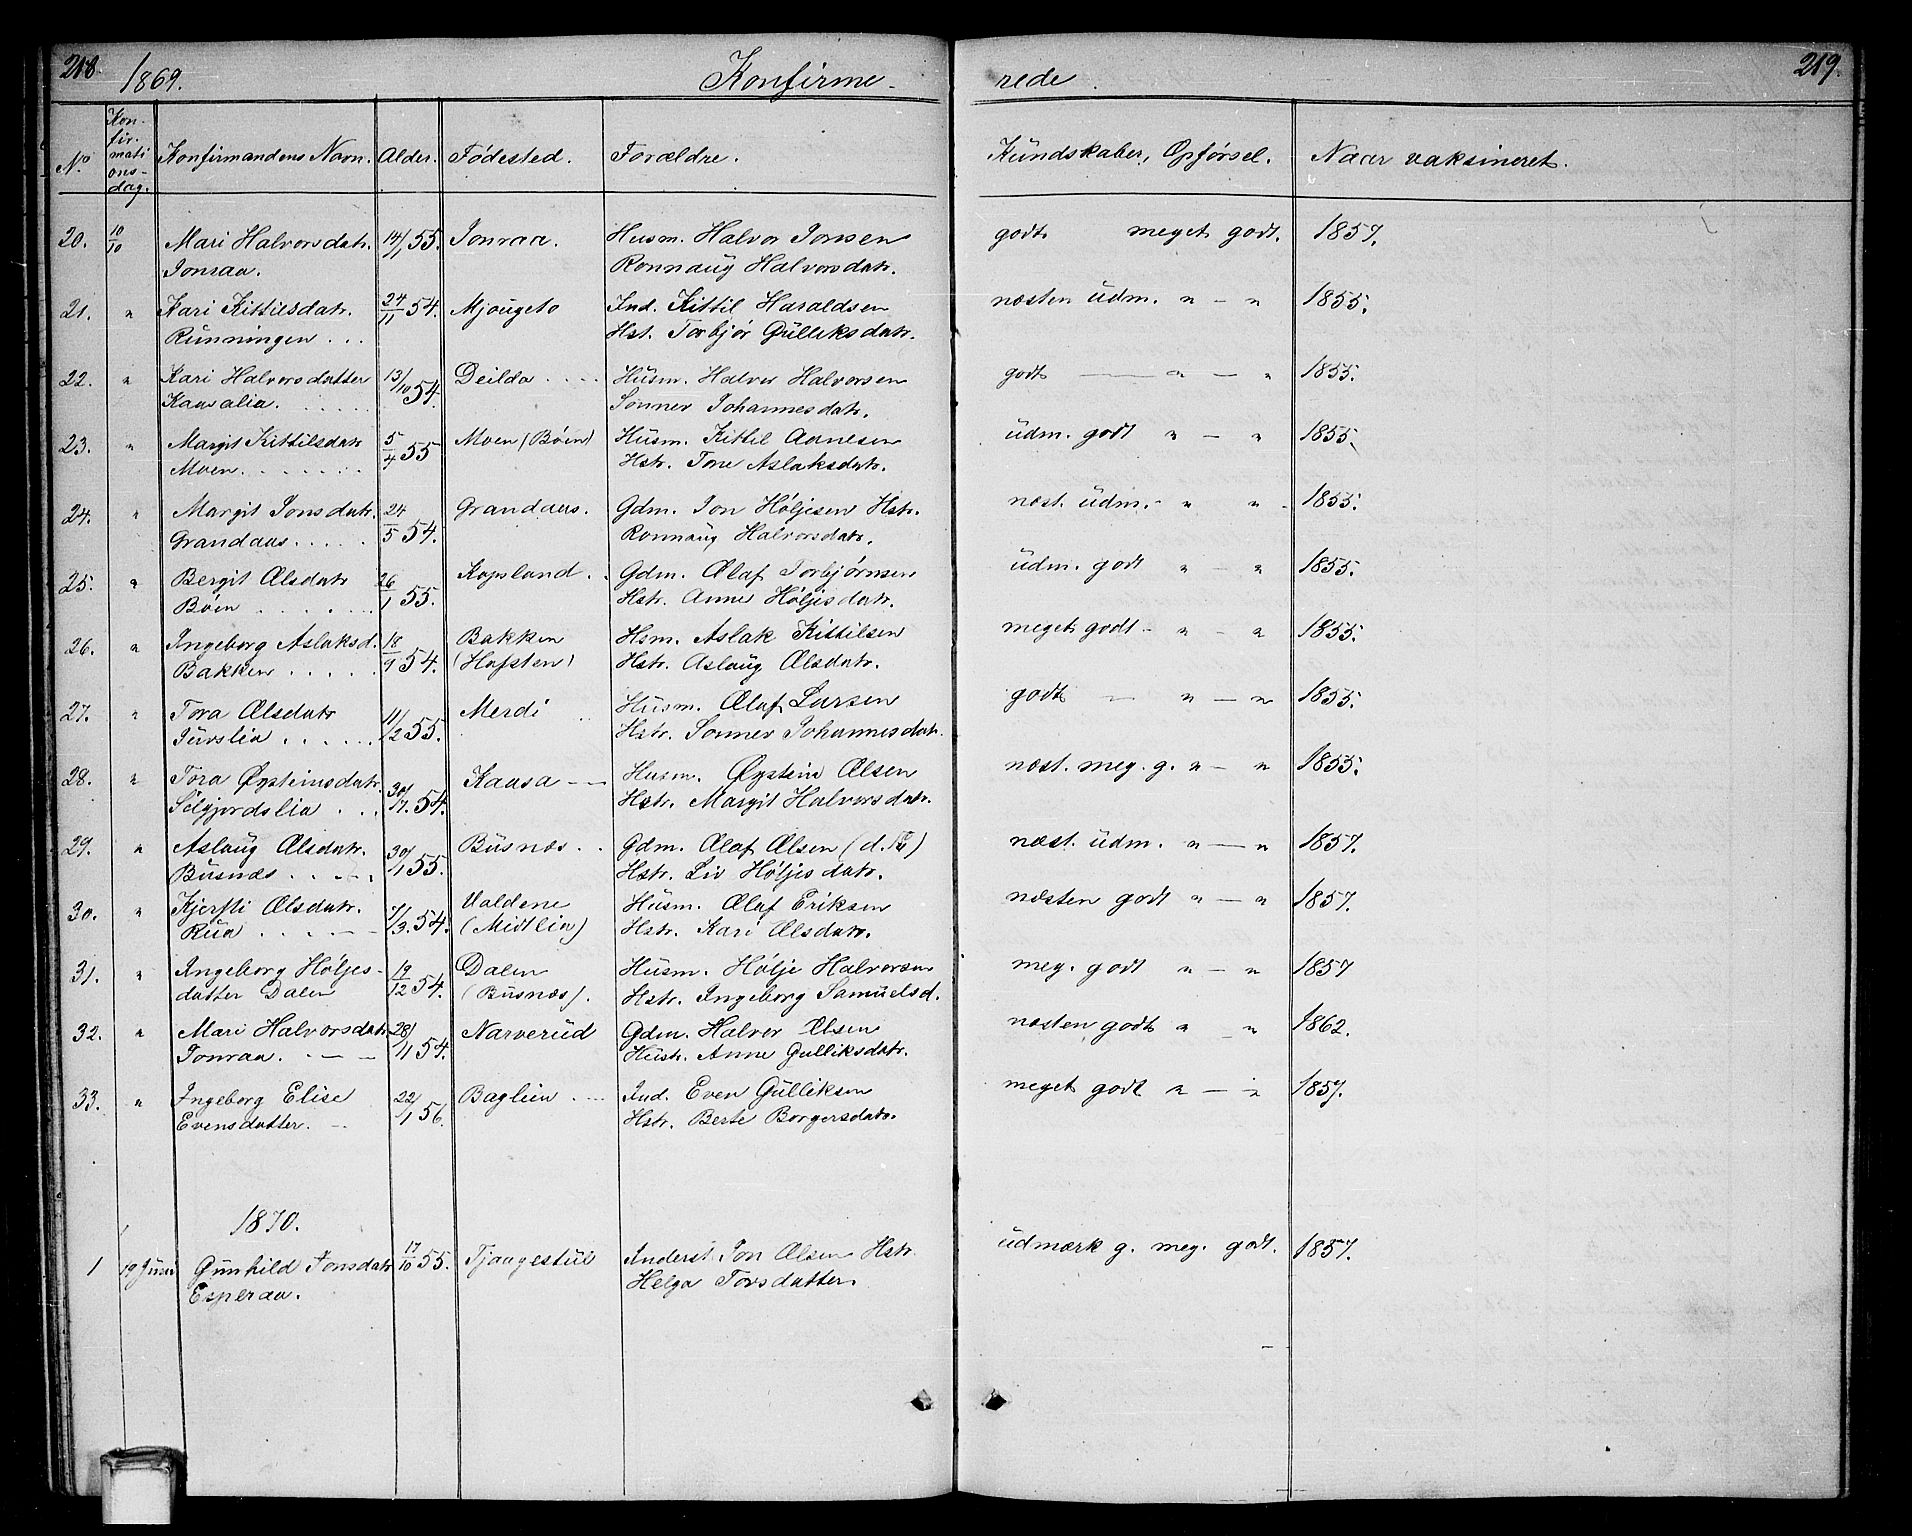 218. 1869. Konfirme-
rede. 219.
No Kon-fir-mati ons-dag. Konfirmandens Navn. Alder. Fødested. Forældre. Kundskaber, Opførsel. Naar vaksineret.
20. 10/10 Mari Halvorsdatr. 14/1 55. Jonraa. Husm. Halvor Jonsen godt meget godt. 1857.
Jonraa. Ronnaug Halvorsdatr.
21. " Kari Kittilsdatr. 24/11 54. Mjaugeto Ind. Kittil Haraldsen næsten udm. " — " 1855.
Runningen ... Hst. Torbjør Gulliksdatr.
22. " Kari Halvorsdatter 13/10 54. Deilda .... Husm. Halvor Halvorsen godt — " — " 1855.
Kaasalia. ..... Sønnev Johannesdatr.
23. " Margit Kittilsdatr 5/4 55 Moen (Bøen) Husm. Kittil Arnesen udm. godt " — " 1855.
Moen. ....... Hstr. Tone Aslaksdatr.
24. " Margit Jonsdatr. 24/5 54. Grandaas. Gdm. Jon Høljesen Hstr. næst. udm. - " " . 1855.
Grandaas ..... Ronnaug Halvorsdatr.
25. " Bergit Olsdatr 26/1 55. Kopsland.. Gdm. Olaf Torbjørnsen udm. godt " — " 1855.
Bøen ...... Hstr. Anne Høljesdatr.
26. " Ingeborg Aslaksd. 18/9 54. Bakken Hsm. Aslak Kittilsen meget godt - " — " 1855.
Bakken ..... (Hafsten) Hstr. Aslaug Olsdatr.
27. " Tora Olsdatr 11/2 55. Merdi .. Husm. Olaf Larsen godt — " — " 1855.
Juvslia ...... Hstr. Sønnev Johannesdatr.
28. " Tora Øysteinsdatr. 30/7. 54. Kaasa — Husm. Øystein Olsen næst. meg. g. " — " 1855.
Selgjordslia ... Hstr. Margit Halvorsdatr.
29. " Aslaug Olsdatr. 30/1 55. Busnæs.. Gdm. Olaf Olsen (d.) næst. udm. " — " 1857.
Busnæs ..... Hstr. Liv Høljesdatr.
30. " Kjersti Olsdatr. 7/3. 54. Ualdene Husm. Olaf Eriksen næsten godt " — " 1857.
Rua .... — (Midtlia) Hstr. Kari Olsdatr.
31. " Ingeborg Høljes- 19/12 54. Dalen Husm. Hølje Halvorsen meg. godt " — " 1857
datter Dalen (Busnæs). Hstr. Ingeborg Samuelsd.
32. " Mari Halvorsdatr 28/1 54. Narverud Gdm. Halvor Olsen næsten godt " — " 1862.
Jonraa. . — — Hustr. Anne Gulliksdatr.
33. " Ingeborg Elise 22/1 56. Baglien. — Ind. Even Gulliksen meget godt " — " 1857.
Evensdatter. — Hstr. Berte Borgersdatr.
1870.
1 19 Juni Gunhild Jonsdatr 17/10 55. Tjaagestul Inderst. Jon Olsen Hstr. udmærk g. meg. godt. 1857.
Esperaa. Helga Torsdatter